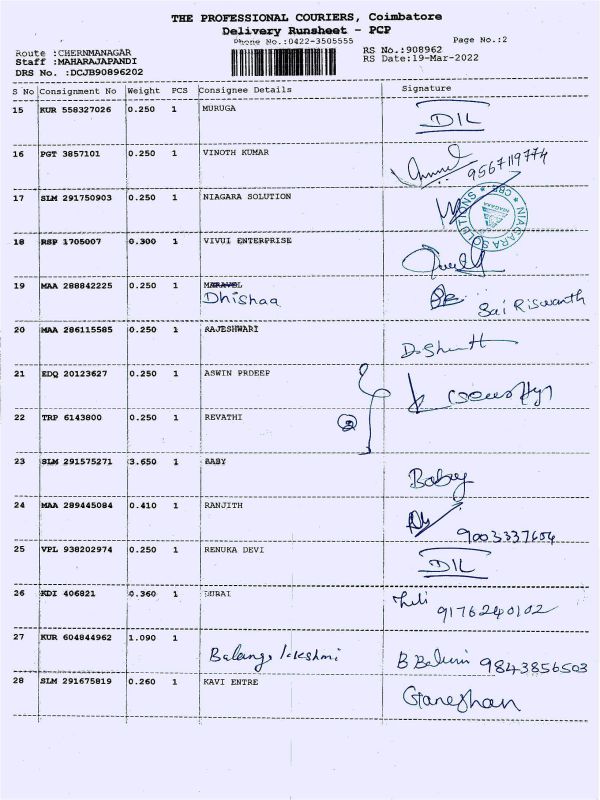 THE PROFESSIONAL COURIERS, Coimbatore
Delivery Runsheet - PCP
Phone No.:0422-3505555 Page No.:2
Route :CHERNMANAGAR RS No.:908962
Staff :MAHARAJAPANDI RS Date:19-Mar-2022
DRS No. :DCJB90896202
S No Consignment No Weight PCS Consignee Details Signature
15 KUR 558327026 0.250 1 MURUGA DIL
16 PGT 3857101 0.250 1 VINOTH KUMAR 9567119774
17 SLM 291750903 0.250 1 NIAGARA SOLUTION
NIAGARA SOLUTIONS * CBE *
18 RSP 1705007 0.300 1 VIVUI ENTERPRISE
19 MAA 288842225 0.250 1
Dhishaa Sai Riswanth
20 MAA 286115585 0.250 1 RAJESHWARI
21 EDQ 20123627 0.250 1 ASWIN PRDEEP
22 TRP 6143800 0.250 1 REVATHI 2
23 SLM 291575271 3.650 1 BABY Baby
24 MAA 289445084 0.410 1 RANJITH
9003337604
25 VPL 938202974 0.250 1 RENUKA DEVI DIL
26 KDI 406821 0.360 1 DURAI
9176240102
27 KUR 604844962 1.090 1
9843856503
28 SLM 291675819 0.260 1 KAVI ENTRE Ganeshan